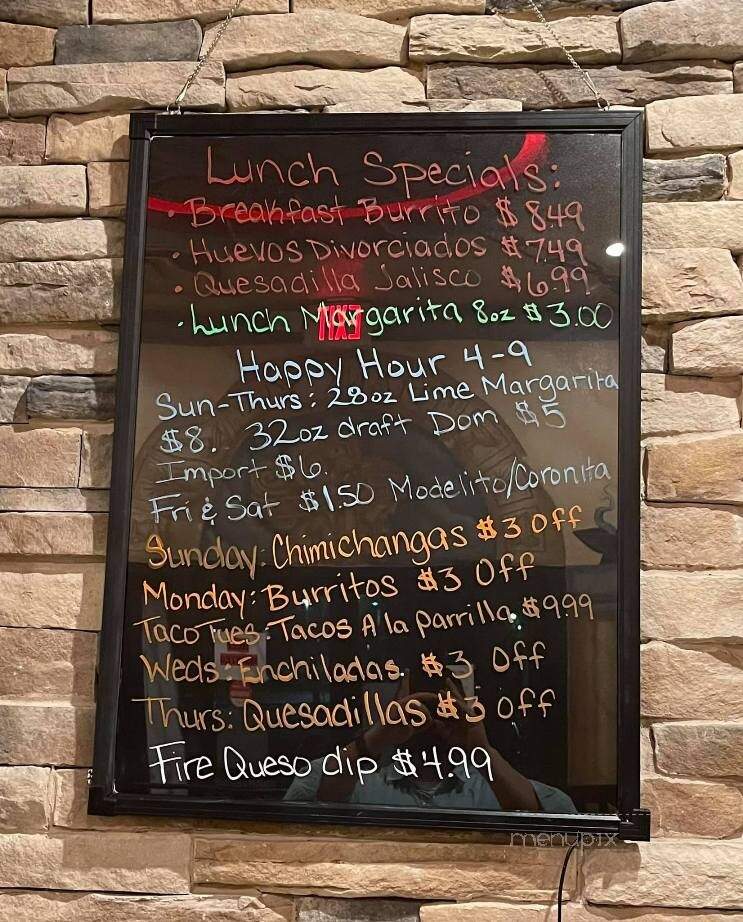 Lunch Specials:
• Breakfast Burrito $8.49
• Huevos Divorciados $7.49
• Quesadilla Jalisco $6.99
• Lunch Margarita 8oz $3.00
Happy Hour 4-9
Sun-Thurs: 28oz Lime Margarita
$8. 32oz draft Dom $5
Import $6.
Fri & Sat $1.50 Modelito/Coronita
Sunday: Chimichangas $3 Off
Monday: Burritos $3 Off
Taco Tues: Tacos A la parrilla $9.99
Weds: Enchiladas. $3 Off
Thurs: Quesadillas $3 Off
Fire Queso dip $4.99
menupix